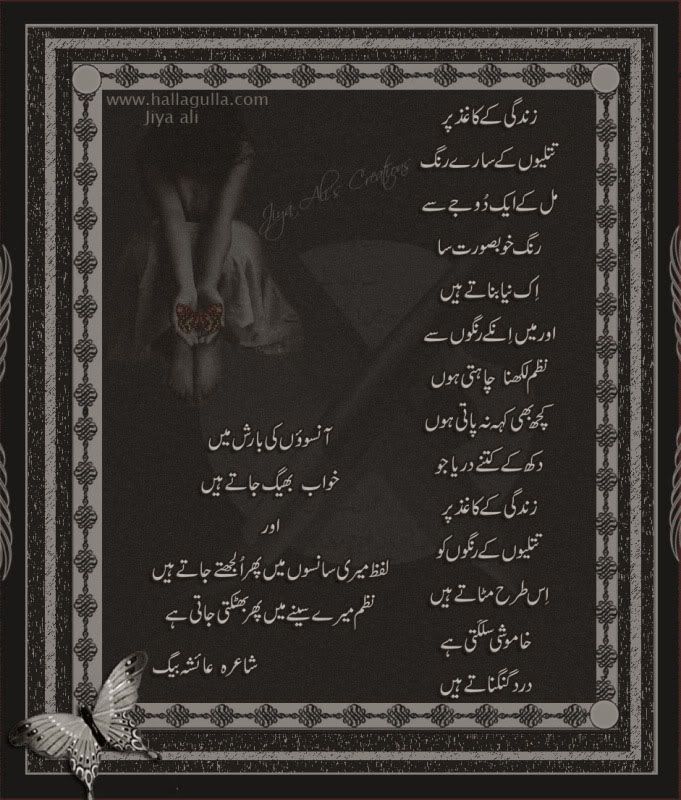 www.hallagulla.com
Jiya ali
Jiya Ali's Creations
زندگی کے کاغذ پر
تتلیوں کے سارے رنگ
مل کے ایک دُوجے سے
رنگ خوبصورت سا
اِک نیا بناتے ہیں
اور میں اِنکے رنگوں سے
نظم لکھنا چاہتی ہوں
کچھ بھی کہہ نہ پاتی ہوں
دکھ کے کتنے دریا جو
زندگی کے کاغذ پر
تتلیوں کے رنگوں کو
اِس طرح مٹاتے ہیں
خاموشی سلگتی ہے
درد گنگناتے ہیں
آنسوؤں کی بارش میں
خواب بھیگ جاتے ہیں
اور
لفظ میری سانسوں میں پھر اُلجھتے جاتے ہیں
نظم میرے سینے میں پھر بھٹکتی جاتی ہے
شاعرہ عائشہ بیگ